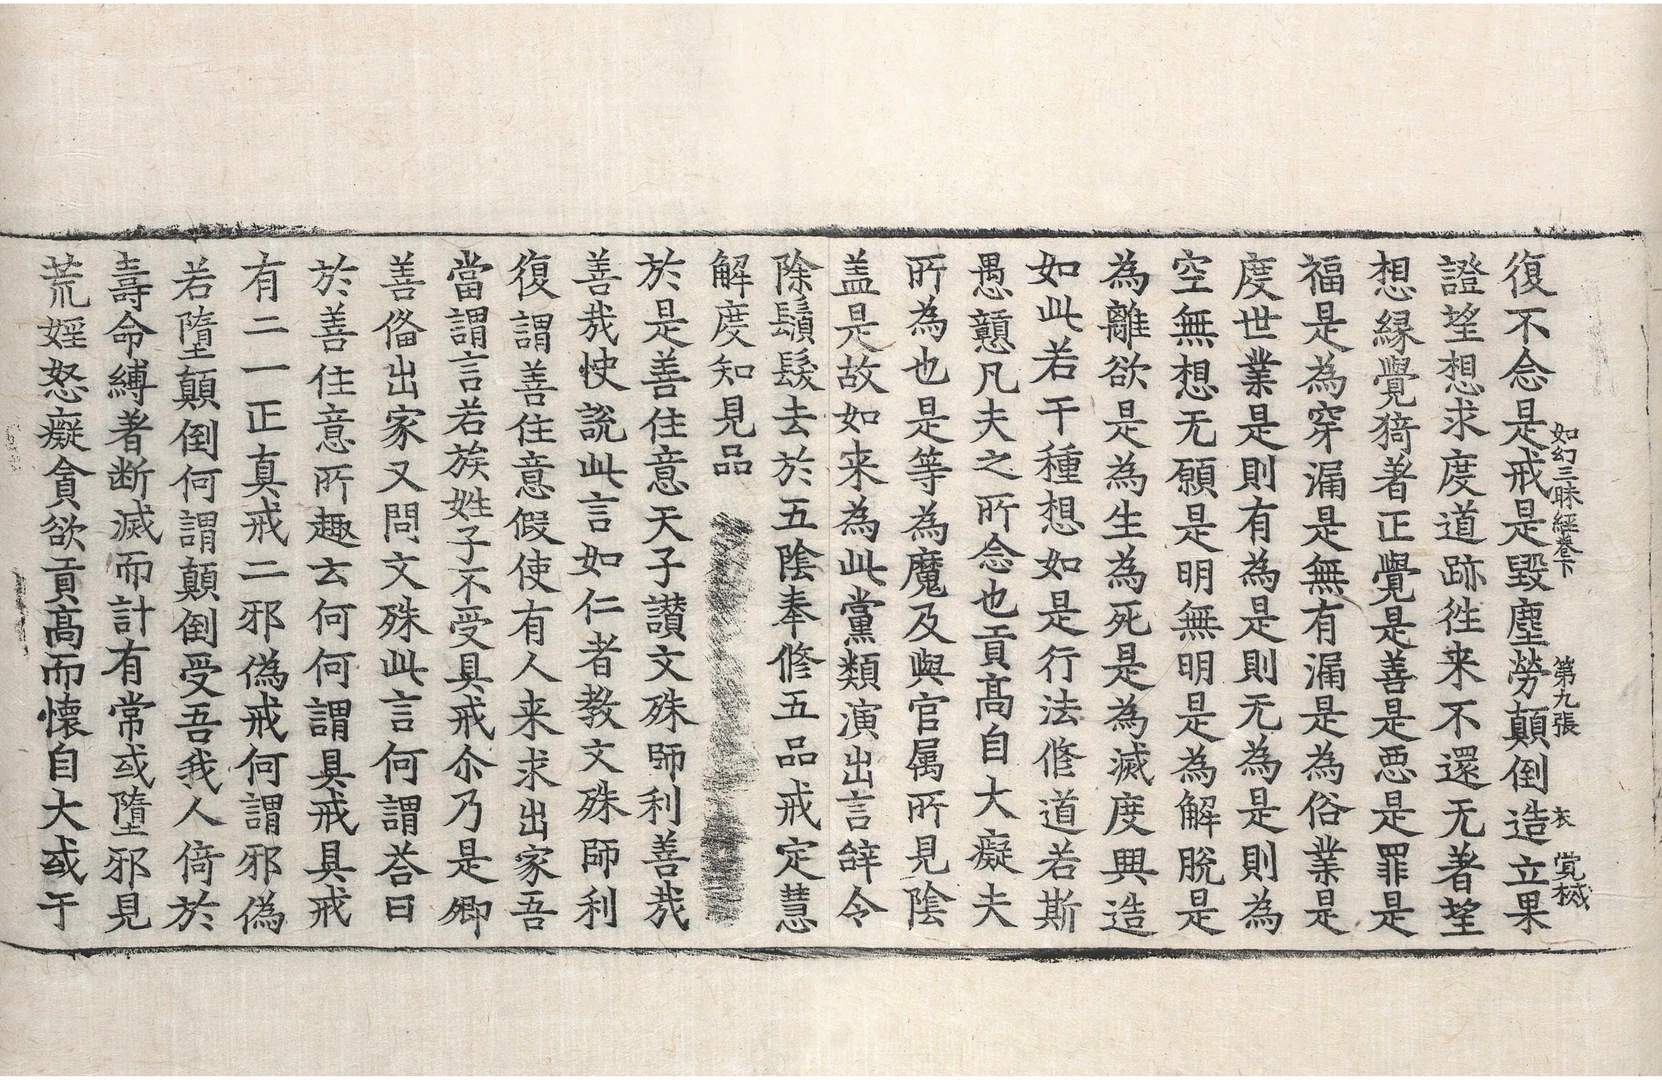 如幻三昧經卷下 第九張 衣
復不念是戒是毀塵勞顛倒造立果
證望想求度道跡徃来不還无著望
想緣覺猗著正覺是善是悪是罪是
福是為穿漏是無有漏是為俗業是
度世業是則有為是則无為是則為
空無想无願是明無明是為解脫是
為離欲是為生為死是為滅度興造
如此若干種想如是行法脩道若斯
愚戇凡夫之所念也貢髙自大癡夫
所為也是等為魔及與官属所見陰
盖是故如来為此黨類演出言辞令
除鬚髮去於五陰奉脩五品戒定慧
解度知見品
於是善住意天子讃文殊師利善哉
善哉快說此言如仁者教文殊師利
復謂善住意假使有人来求出家吾
當謂言若族姓子不受具戒尒乃是卿
善脩出家又問文殊此言何謂荅曰
於善住意所趣云何何謂具戒具戒
有二一正真戒二邪偽戒何謂邪偽
若墮顛倒何謂顛倒受吾我人倚於
壽命縛著断滅而計有常或墮邪見
荒婬怒癡貪欲貢髙而懷自大或于